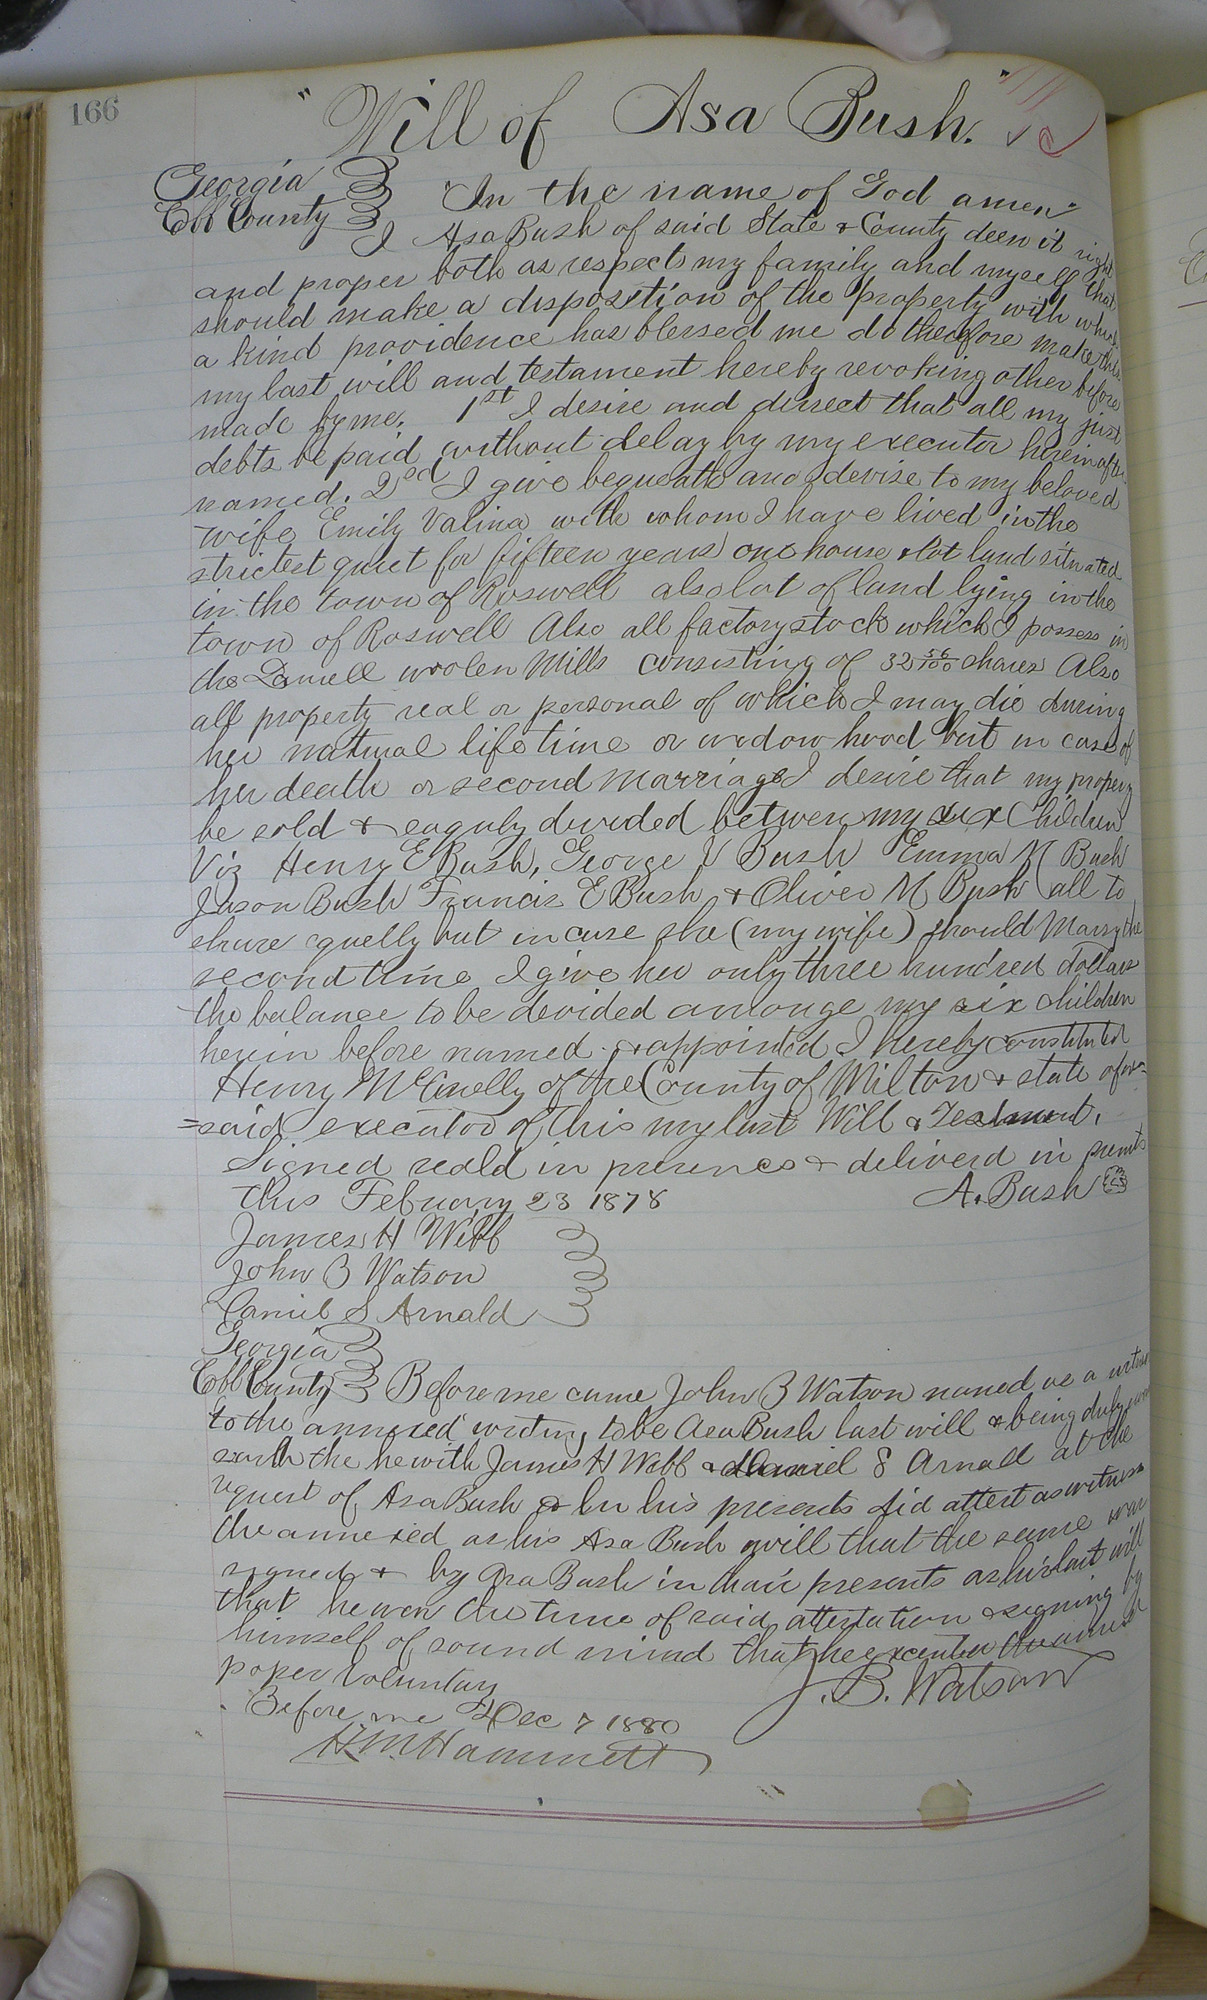 166
"Will of Asa Bush."
Georgia
Cobb County
"In the name of God amen"
I Asa Bush of said State & County deem it right
and proper both as respects my family and myself that
should make a disposition of the property with which
a kind providence has blessed me do therefore make this
my last will and testament hereby revoking other before
made by me. 1st I desire and direct that all my just
debts be paid without delay by my executor hereinafter
named. 2ed I give bequeath and devise to my beloved
wife Emily Valina with whom I have lived in the
strictest quiet for fifteen years one house & lot land situated
in the town of Roswell also lot of land lying in the
town of Roswell Also all factory stock which I possess in
the woolen Mills consisting of 32 56/100 shares Also
all property real or personal of which I may die during
her natural life time or widow hood but in case of
her death or second marriage I desire that my property
be sold & eaqualy devided between my six Children
Viz Henry E Bush, George Bush Emma M Bush
Jason Bush Francis E Bush & Oliver M Bush all to
share equelly but in case she (my wife) should Marry the
second time I give her only three hundred dollars
the balance to be devided amonge my six children
herein before named & appointed I hereby constituted
Henry McCnelly of the County of Milton & state afore=
=said executor of this my last Will & Testament.
Signed seald in presence & deliverd in presents
this February 23 1878 A. Bush
James H Webb
John B Watson
Daniel S Arnald
Georgia
Cobb County Before me came John B Watson named as a witness
to the annexed writing to be Asa Bush last will & being duly sworn
saith the he with James H Webb & Daniel S Arnall at the
request of Asa Bush & in his presents did attest as witness
the annexed as his Asa Bush will that the same was
signed & by Asa Bush in thair presents as his last will
that he was the time of said attestation & signing by
himself of sound mind that he executed the annexed
paper Voluntary J. B. Watson
Before me Dec 7 1880
H M Hammett